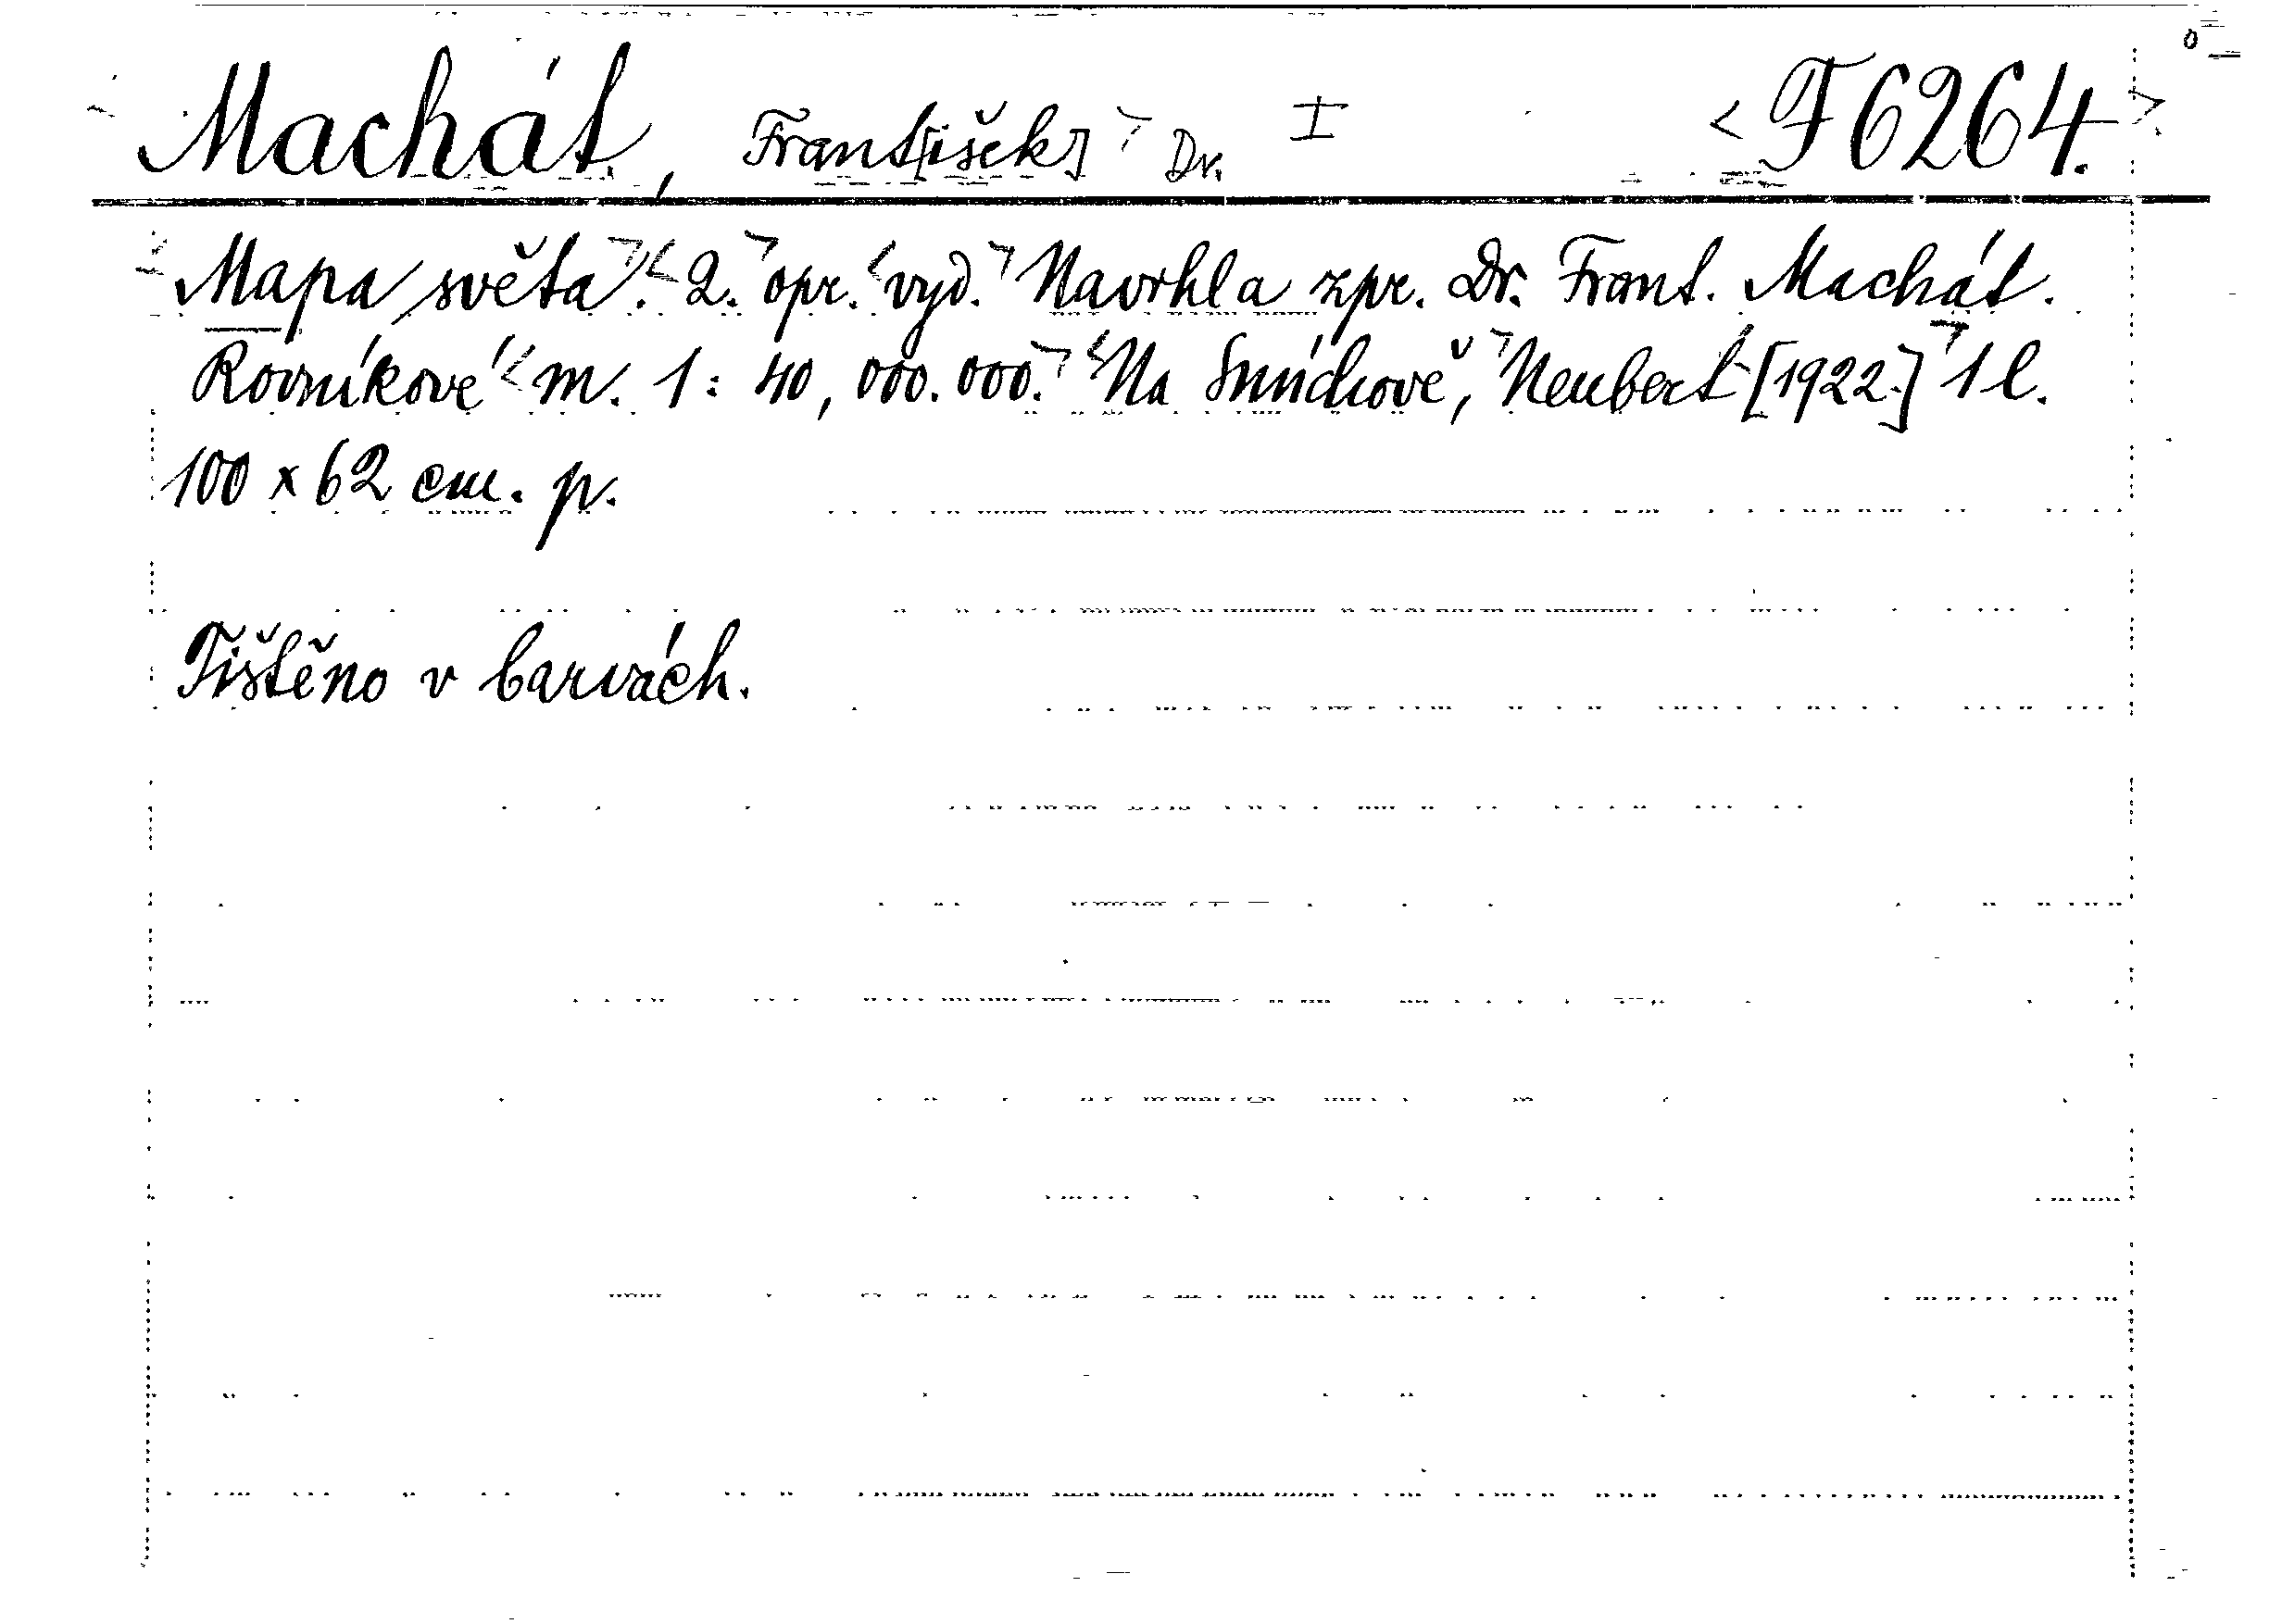 Machát, Frant[išek] Dr. F 6264.
Mapa světa. 2. opr. vyd. Navrhl a zpr. Dr. Frant. Machát.
Rovníkové m. 1 : 40,000.000. Na Smíchově, Neubert [1922.] 1 l.
100 x 62 cm. p.
Tištěno v barvách.